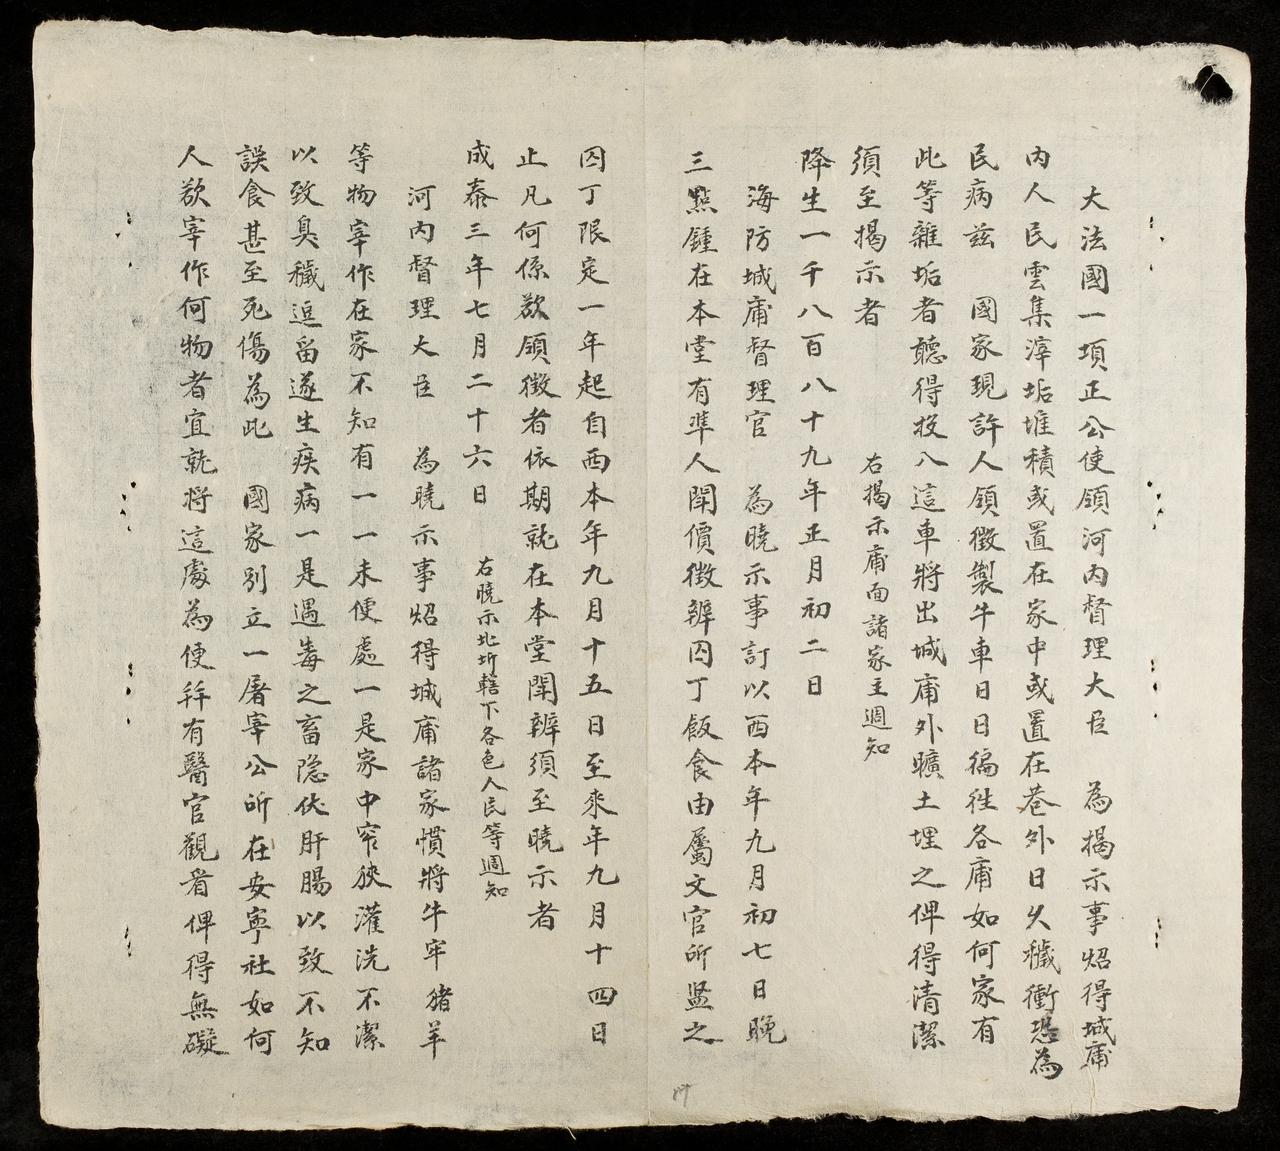 大法國一項正公使領河内督理大臣　為揭示事炤得城庯
内人民雲集滓垢堆積或置在家中或置在巷外日久穢衝恐為
民病兹　國家現許人領徵製牛車日日徧徃各庯如何家有
此等雜垢者聽得投入這車將出城庯外曠土埋之俾得清潔
須至揭示者　右揭示庯面諸家主週知
降生一千八百八十九年正月初二日
海防城庯督理官　為曉示事訂以西本年九月初七日晚
三點鍾在本堂有準人鬪價徵辨囚丁飯食由屬文官所監之
囚丁限定一年起自西本年九月十五日至來年九月十四日
止凡何係欲領徵者依期就在本堂鬪辨須至曉示者
成泰三年七月二十六日　右曉示北圻轄下各色人民等週知
河内督理大臣　為曉示事炤得城庯諸家慣將牛牢猪羊
等物宰作在家不知有一一未便處一是家中窄狹灌洗不潔
以致臭穢逗留遂生疾病一是遇毒之畜隐伏肝腸以致不知
誤食甚至死傷為此　國家別立一屠宰公所在安寧社如何
人欲宰作何物者宜就將這處為便并有醫官觀看俾得無礙